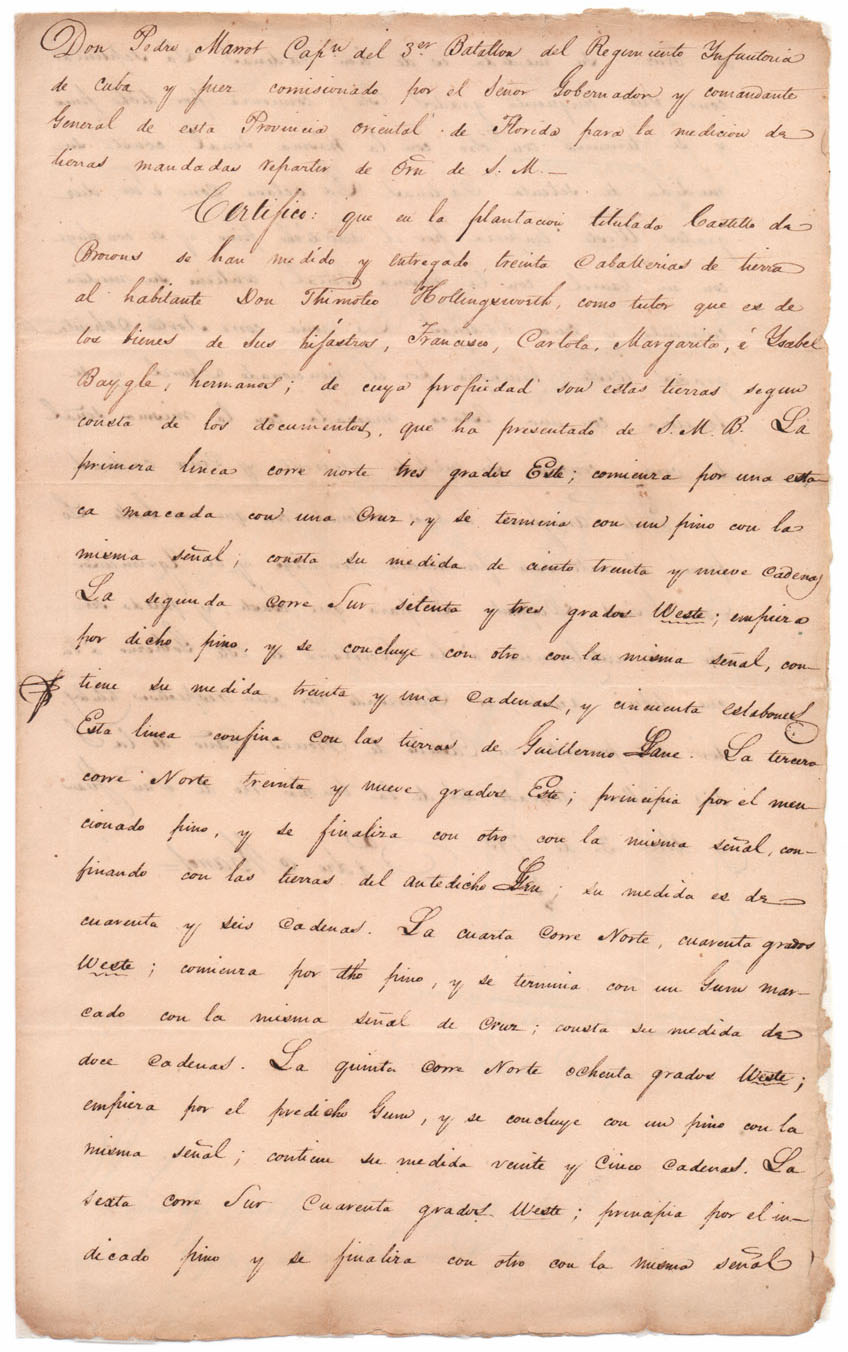 Don Pedro Marrot Capn del 3er Batallon del Regimiento Ynfanteria
de cuba y juez comisionado por el Señor Gobernador y comandante
General de esta Provincia oriental de Florida para la medicion de
tierras mandadas repartir de Orn de S. M.—
Certifico: que en la plantacion titulada Castillo de
Browns se han medido y entregado treinta Caballerias de tierra
al habitante Don Thimoteo Hollingsworth, como tutor que es de
los bienes de sus hijastros, Francisco, Carlota, Margarita, é Ysabel
Baygle, hermanos; de cuya propiedad son estas tierras segun
consta de los documentos, que ha presentado de S. M. B. La
primera linea corre norte tres grados Este; comienza por una esta-
ca marcada con una Cruz, y se termina con un pino con la
misma señal; consta su medida de ciento treinta y nueve cadenas
La segunda corre Sur setenta y tres grados Weste; empieza
por dicho pino, y se concluye con otro con la misma señal, con-
tiene su medida treinta y una cadenas, y cincuenta eslabones
Esta linea confina con las tierras de Guillermo Lane. La tercera
corre Norte treinta y nueve grados Este; principia por el men-
cionado pino, y se finaliza con otro con la misma señal, con-
finando con las tierras del antedicho; su medida es de
cuarenta y seis cadenas. La cuarta corre Norte, cuarenta grados
Weste; comienza por dho pino, y se termina con un Gum mar-
cado con la misma señal de Cruz; consta su medida de
doce cadenas. La quinta corre Norte ochenta grados Weste;
empieza por el predicho Gum, y se concluye con un pino con la
misma señal; contiene su medida veinte y cinco cadenas. La
sexta corre Sur cuarenta grados Weste; principia por el in-
dicado pino y se finaliza con otro con la misma señal